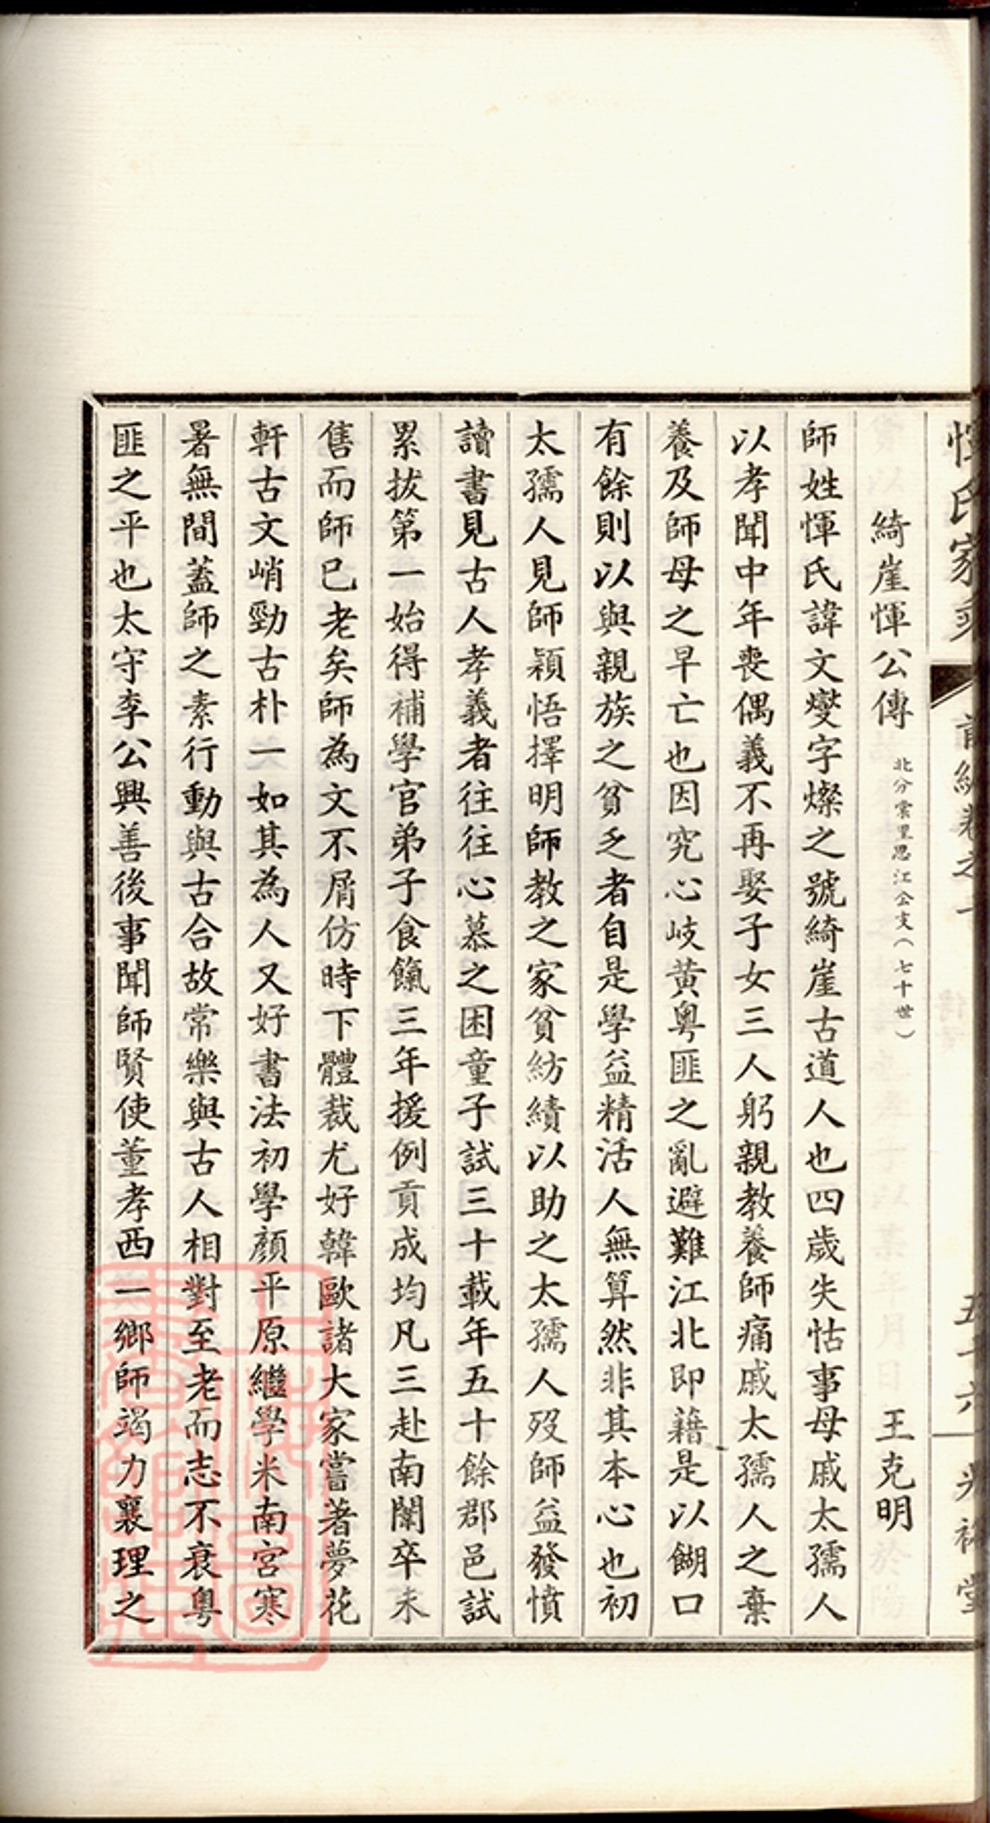 惲氏家乘 前編卷之一 五十六 光裕堂
綺崖惲公傳 北分棠里思江公支（七十世） 王克明
師姓惲氏諱文燮字燦之號綺崖古道人也四歲失怙事母戚太孺人
以孝聞中年喪偶義不再娶子女三人躬親教養師痛戚太孺人之棄
養及師母之早亡也因究心岐黄粵匪之亂避難江北即藉是以餬口
有餘則以與親族之貧乏者自是學益精活人無算然非其本心也初
太孺人見師穎悟擇明師教之家貧紡績以助之太孺人歿師益發憤
讀書見古人孝義者往往心慕之困童子試三十載年五十餘郡邑試
累拔第一始得補學官弟子食餼三年援例貢成均凡三赴南闈卒未
售而師已老矣師為文不屑仿時下體裁尤好韓歐諸大家嘗著夢花
軒古文峭勁古朴一如其為人又好書法初學顏平原繼學米南宮寒
暑無間蓋師之素行動與古合故常樂與古人相對至老而志不衰粵
匪之平也太守李公興善後事聞師賢使董孝西一鄉師竭力襄理之